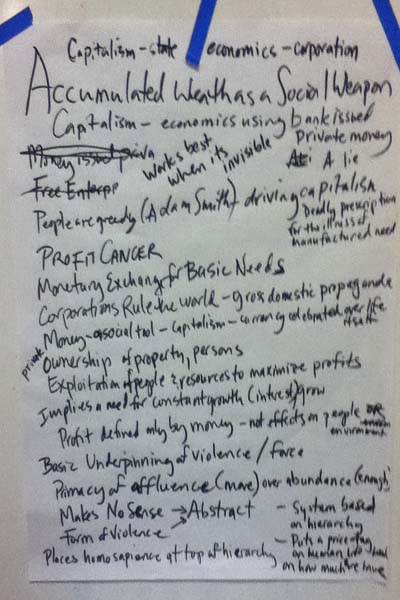 Capitalism - state / economics - corporation
Accumulated Weath as a Social Weapon
Capitalism - economics using bank issued private money
Money issued priva
works best when its invisible
A lie
Free Enterp
People are greedy (Adam Smith) - driving capitalism
Deadly prescription for the illness of manufactured need
PROFIT CANCER
Monetary Exchange for Basic Needs
Corporations Rule the world - gross domestic propaganda
Money - a social tool - capitalism - currency celebrated over life itself
private ownership of property, persons
Exploitation of people & resources to maximize profits
Implies a need for constant growth (interest) grow
Profit defined only by money - not effects on people or environment
Basic Underpinning of violence / force
Primacy of affluence (more) over abundance (enough)
Makes No Sense → Abstract
Form of Violence
- System based on hierarchy
- Puts a price tag on human life
on how much
Places homosapience at top of hierarchy